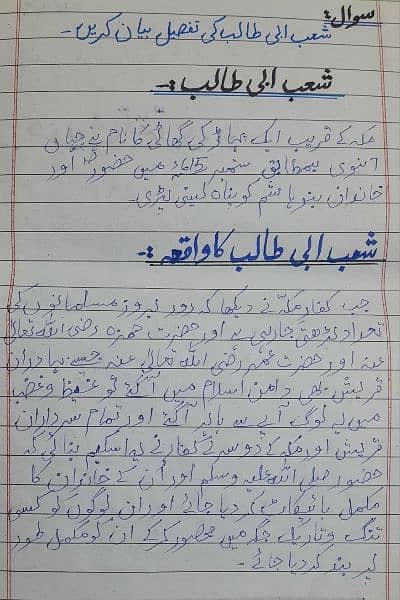 سوال:
شعب ابی طالب کی تفصیل بیان کریں۔
شعب ابی طالب :-
مکہ کے قریب ایک پہاڑ کی گھاٹی کا نام ہے جہاں
7 نبوی بمطابق ستمبر 615ء میں حضورؐ اور
خاندان بنو ہاشم کو پناہ لینی پڑی۔
شعب ابی طالب کا واقعہ :-
جب کفار مکہ نے دیکھا کہ روز بروز مسلمانوں کی
تعداد بڑھتی جا رہی ہے اور حضرت حمزہ رضی اللہ تعالیٰ
عنہ اور حضرت عمر رضی اللہ تعالیٰ عنہ جیسے بہادران
قریش بھی دامن اسلام میں آ گئے تو غیظ و غضب
میں یہ لوگ آپے سے باہر آ گئے اور تمام سرداران
قریش اور مکہ کے دوسرے کفار نے یہ اسکیم بنائی کہ
حضور صلی اللہ علیہ وسلم اور ان کے خاندان کا
مکمل بائیکاٹ کر دیا جائے اور ان لوگوں کو کسی
تنگ و تاریک جگہ میں محصور کرکے ان کو مکمل طور
پر بند کر دیا جائے۔